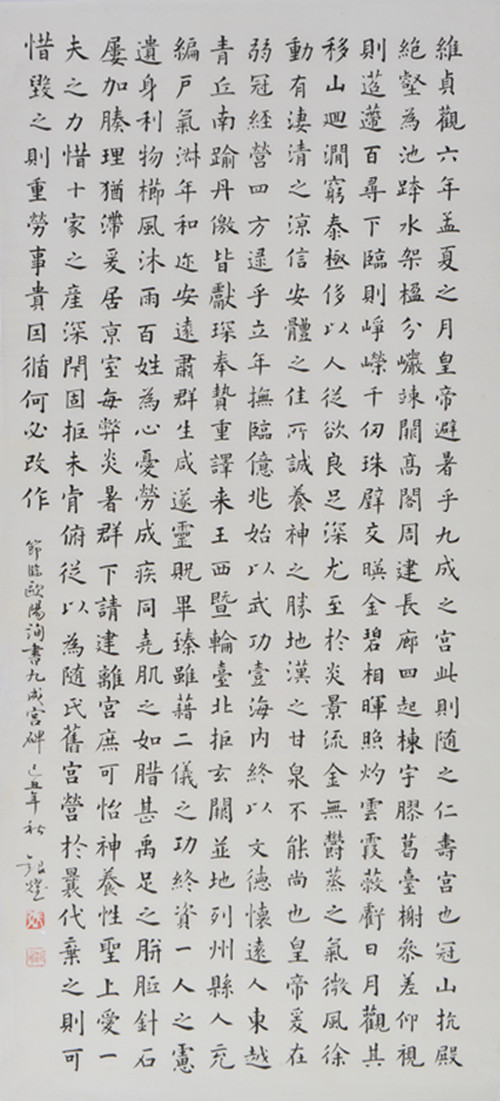 維貞觀六年孟夏之月皇帝避暑乎九成之宮此則隨之仁壽宮也冠山抗殿
絕壑為池跨水架楹分巖竦闕高閣周建長廊四起棟宇膠葛臺榭參差仰視
則迢遰百尋下臨則崢嶸千仞珠璧交暎金碧相暉照灼雲霞蔽虧日月觀其
移山迴澗窮泰極侈以人從欲良足深尤至於炎景流金無鬱蒸之氣微風徐
動有淒清之涼信安體之佳所誠養神之勝地漢之甘泉不能尚也皇帝爰在
弱冠經營四方逮乎立年撫臨億兆始以武功壹海內終以文德懷遠人東越
青丘南踰丹徼皆獻琛奉贄重譯来王西暨輪臺北拒玄闕並地列州縣人充
編戶氣淑年和迩安遠肅群生咸遂靈貺畢臻雖藉二儀之功終資一人之慮
遺身利物櫛風沐雨百姓為心憂勞成疾同堯肌之如腊甚禹足之胼胝針石
屢加腠理猶滯爰居京室每弊炎暑群下請建離宮庶可怡神養性聖上愛一
夫之力惜十家之產深閉固拒未肯俯從以為隨氏舊宮營於曩代棄之則可
惜毀之則重勞事貴因循何必改作
節臨歐陽詢書九成宮碑 己丑年秋